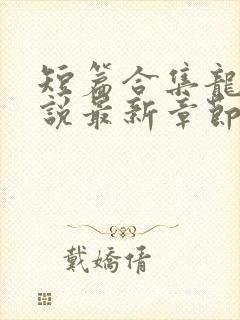 短篇合集龍
說最新章節
戴嬌倩